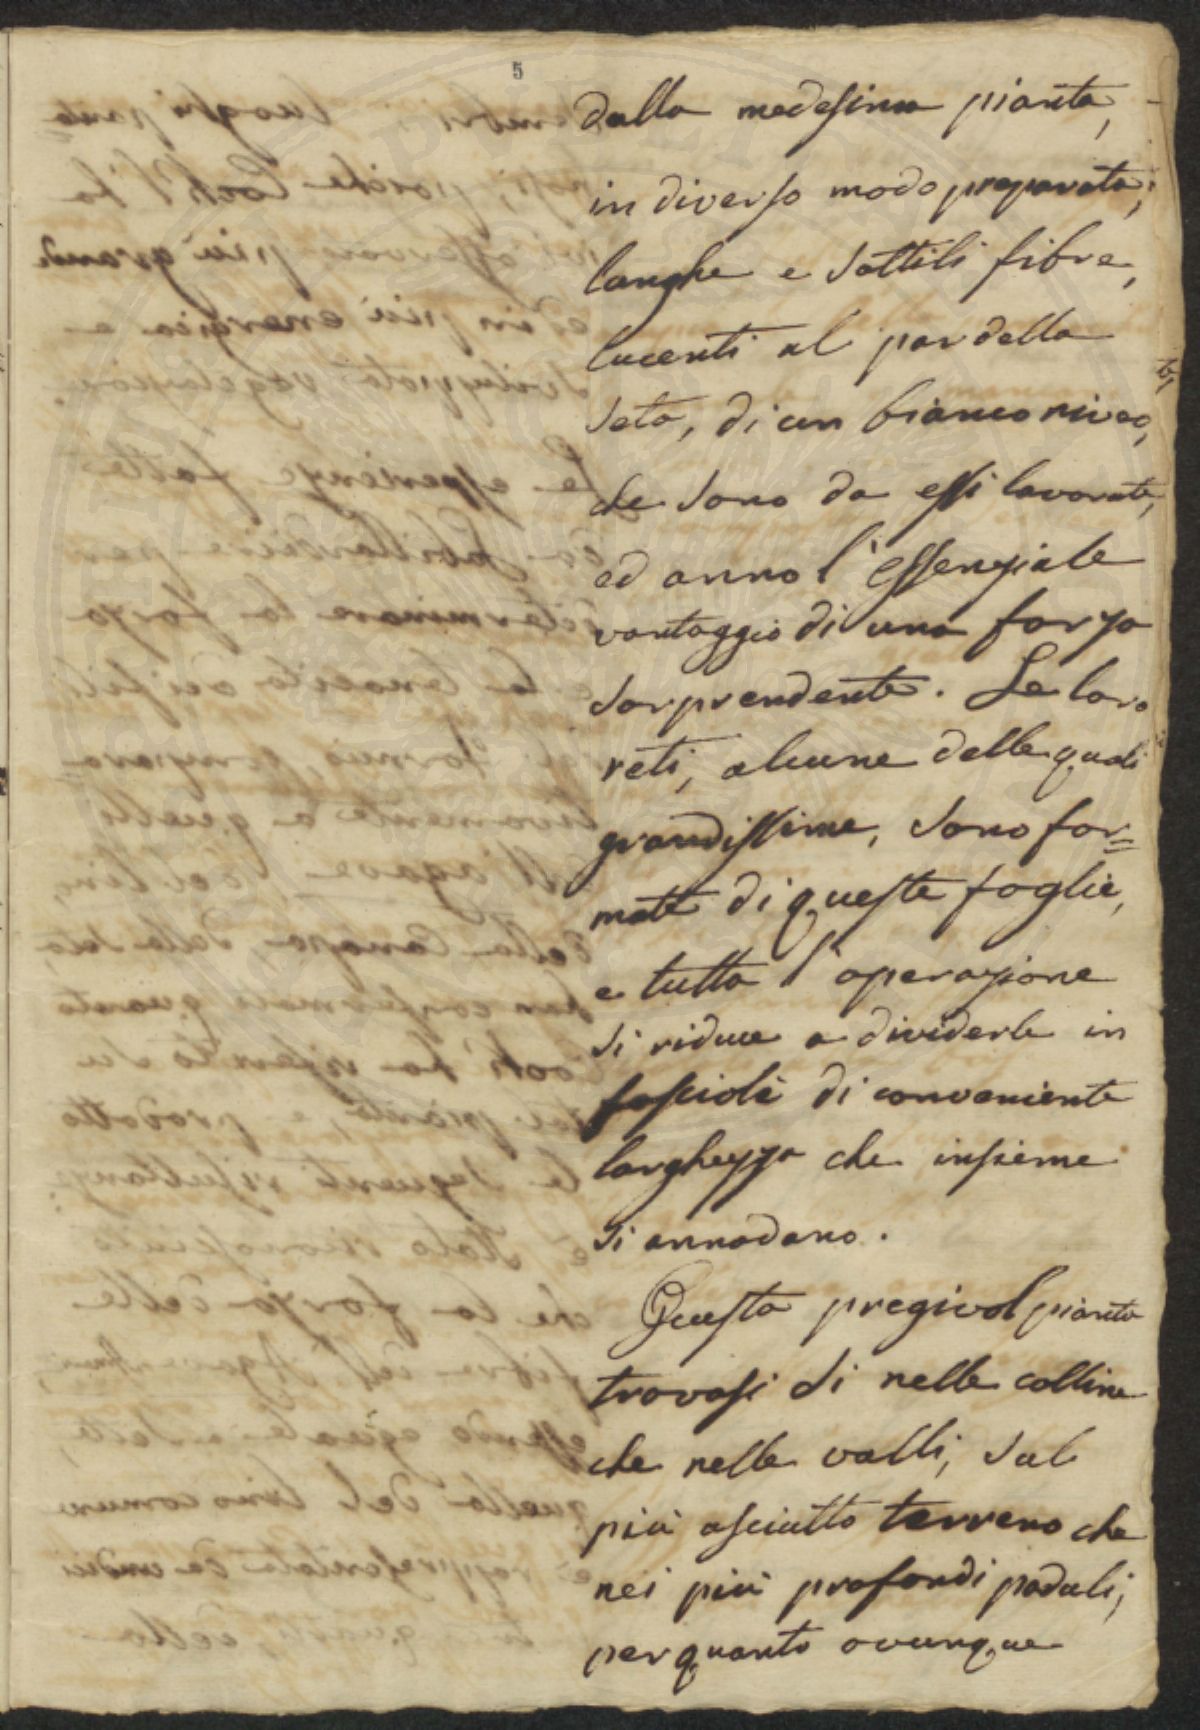 5
dalla medesima pianta,
in diverso modo preparata;
lunghe e sottili fibre,
lucenti al par della
seta, di un bianco niveo,
che sono da essi lavorate,
ed anno l'essenziale
vantaggio di una forza
sorprendente. Le loro
reti, alcune delle quali
grandissime, sono for=
mate di queste foglie,
e tutta l'operazione
si riduce a dividerle in
fasciole di conveniente
larghezza che insieme
si annodano.
Questa pregivol pianta
trovasi sì nelle colline
che nelle valli, sul
più asciutto terreno che
nei più profondi paduli;
per quanto ovunque